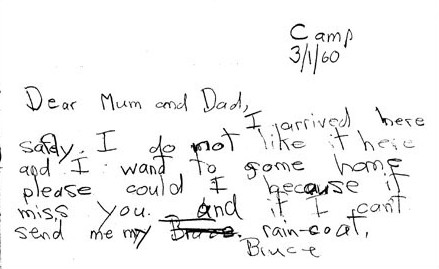 Camp
3/1/60
Dear Mum and Dad,
I arrived here
safly. I do not like it here
and I want to some home
please could I because if
miss you. and if I cant
send me my rain-coat,
Bruce